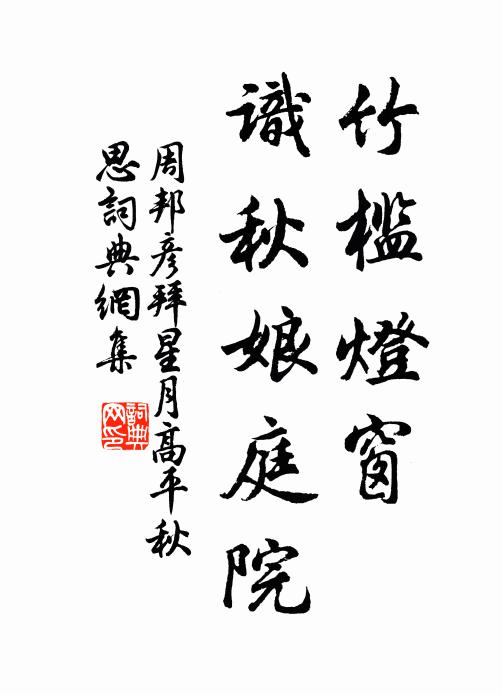 竹槛燈窗
識秋娘庭院
周邦彦拜星月高平秋
思詞典網集
詞典网印